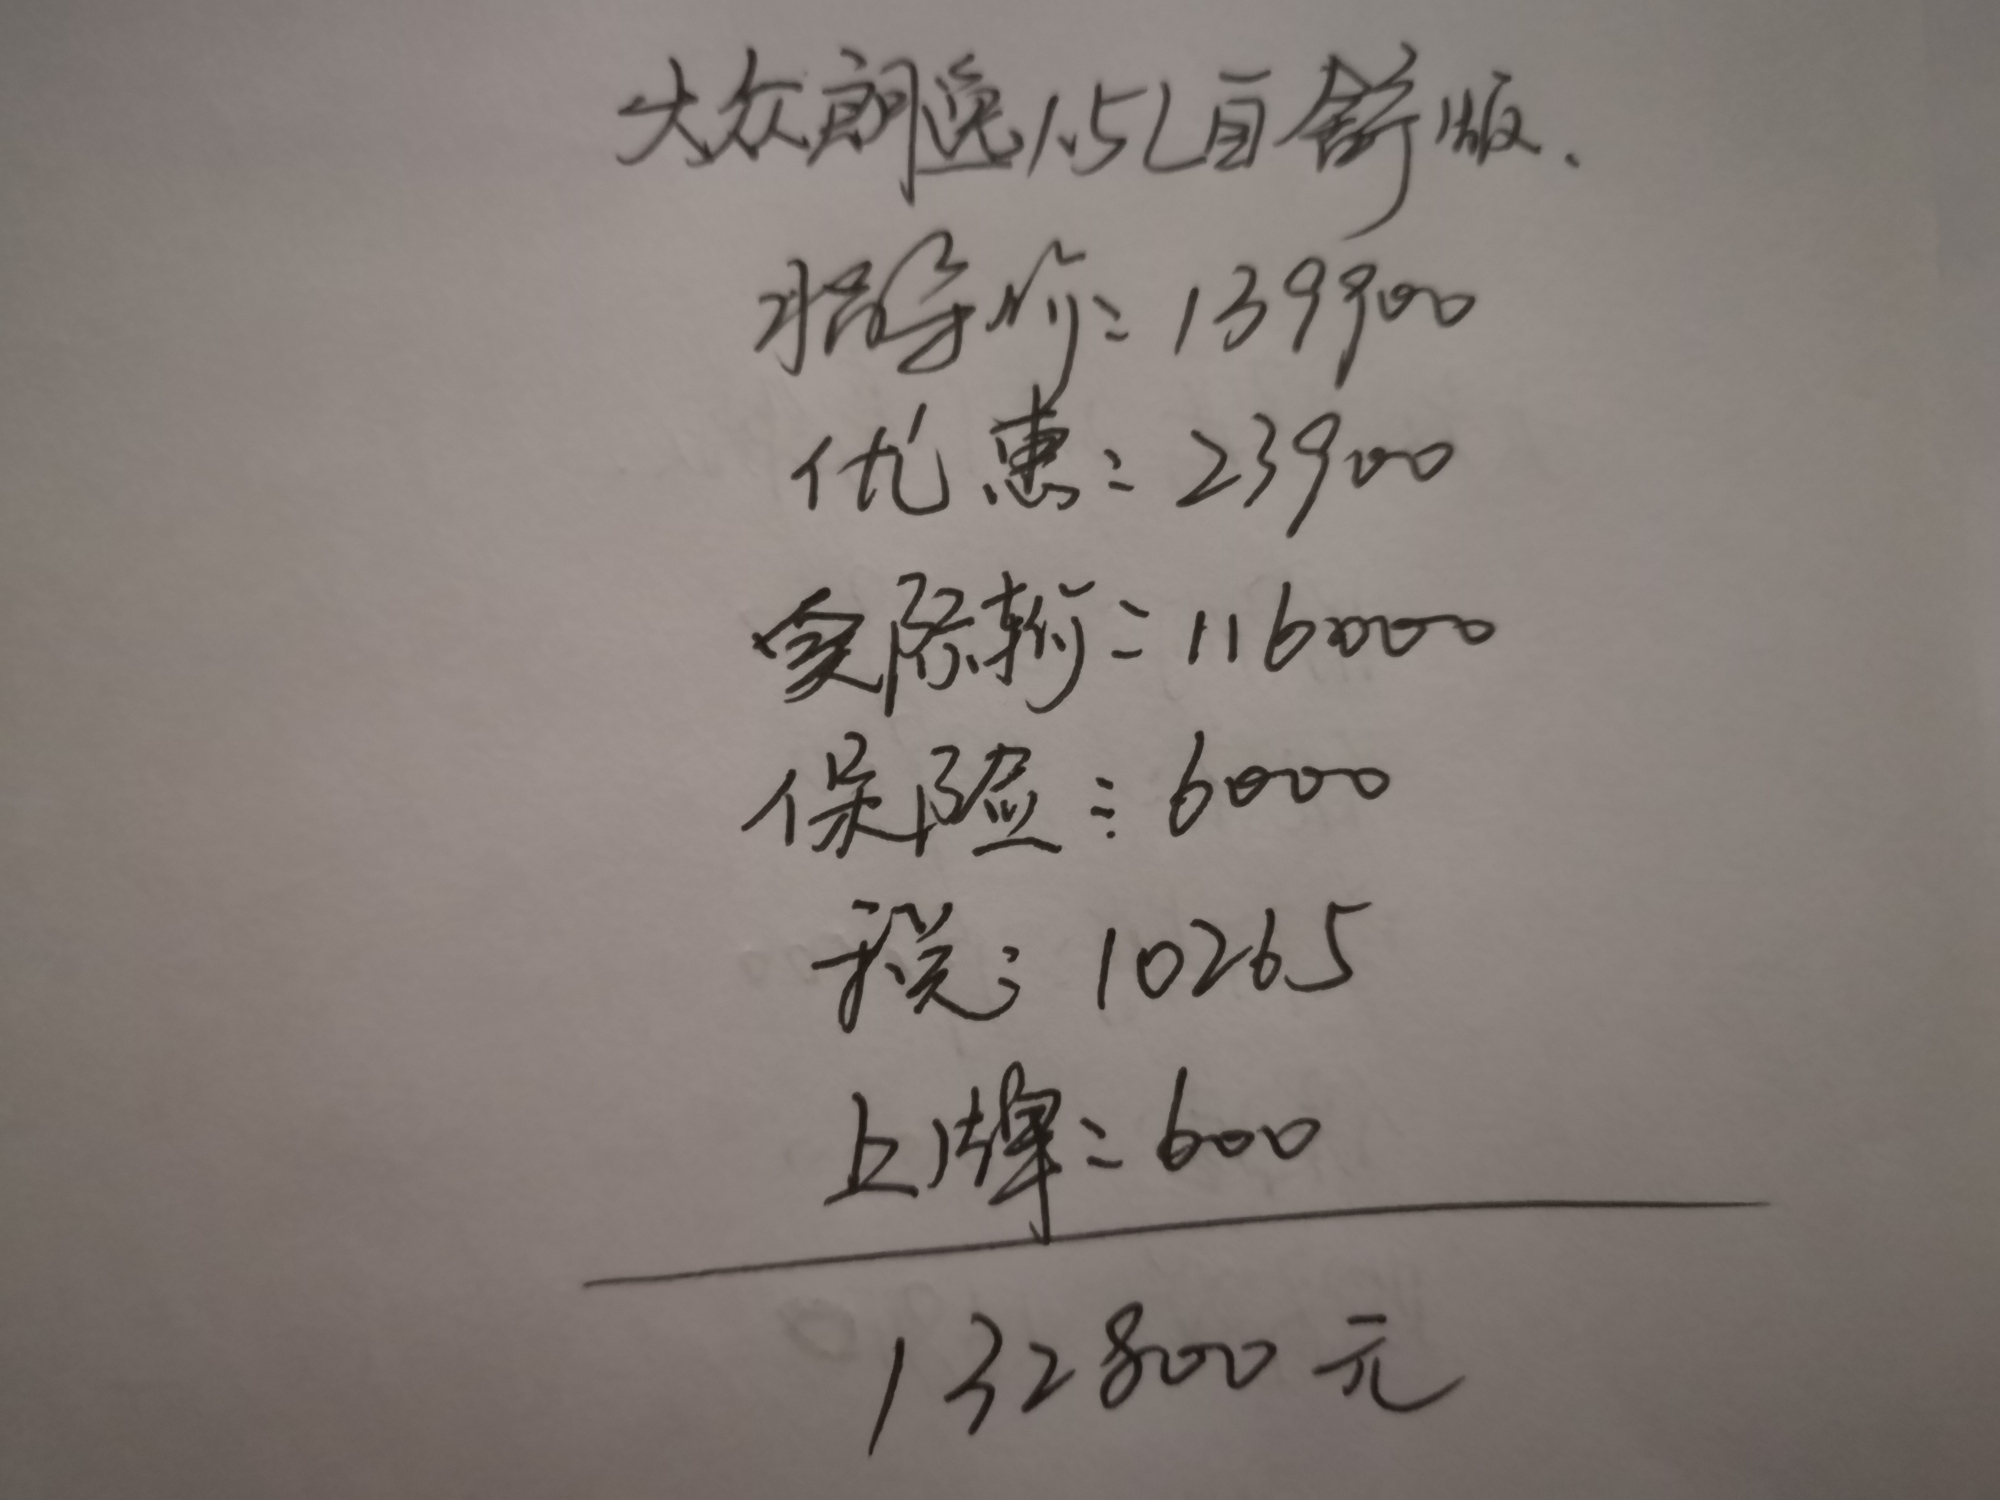 大众朗逸1.5L自舒版.
指导价:139900
优惠:23900
实际车价:116000
保险:6000
税:10265
上牌:600
132800元